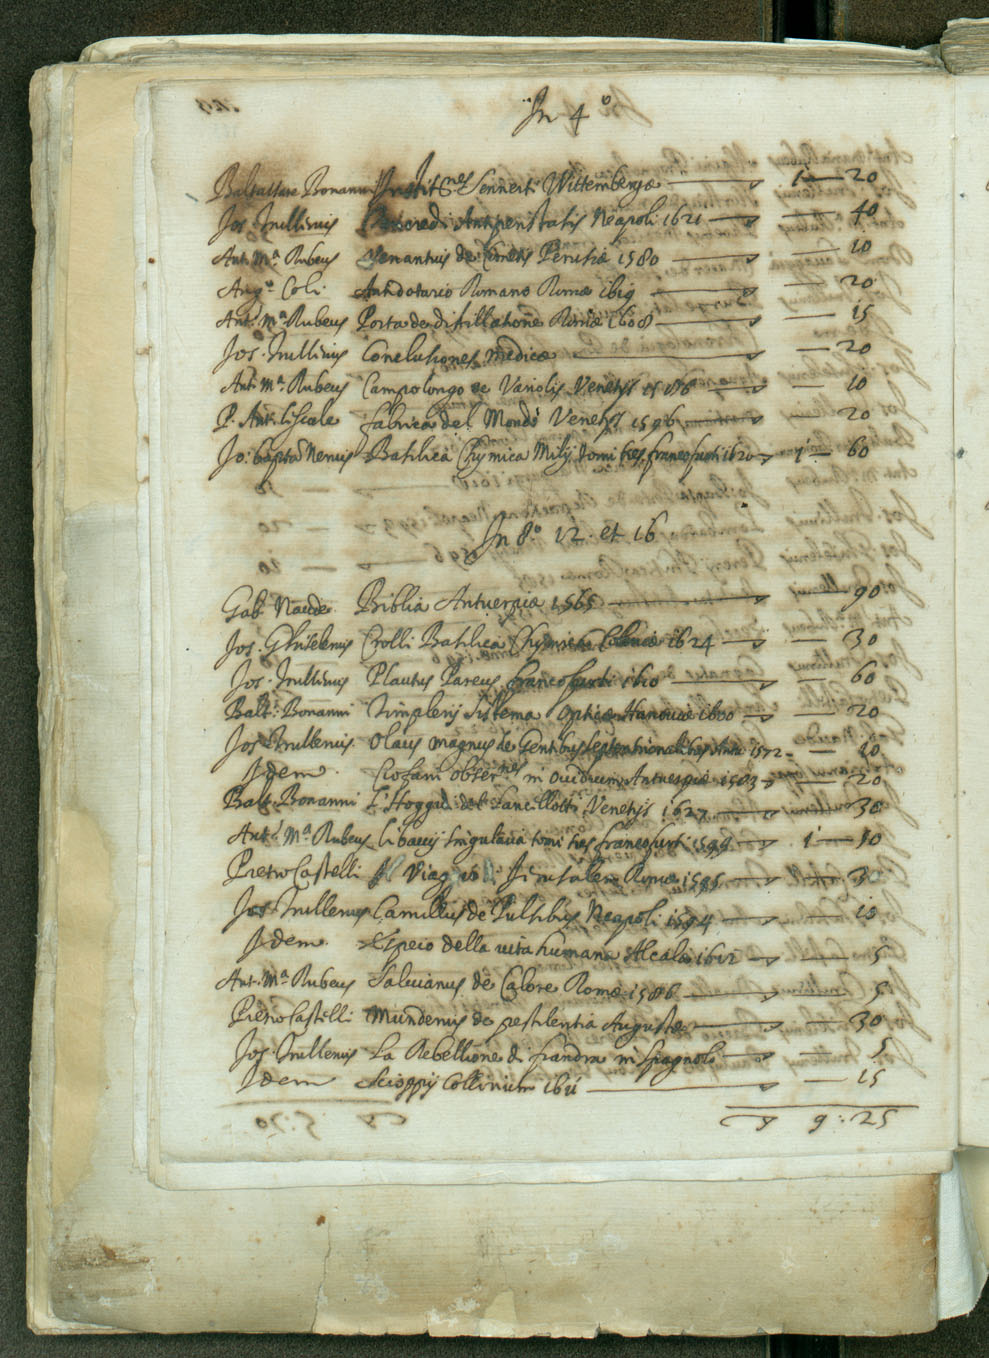 In 4º
Baltassare Bonanni Instit.nes Sennerti Wittembergæ 1 — 20
Jos. Trullinus Antipenstasis Neapoli 1621 — 40
Ant. Mª Rubeus Venantius de Perusiæ 1580 — 10
Angº Coli Antidotario Romano Romæ 1619 — 20
Ant. Mª Rubeus Porta de distillatione Romæ 1608 — 15
Jos. Trullinus Conclusiones medicæ — 20
Ant. Mª Rubeus Campolongo de Variolis Venetijs 1586 — 10
P. Ant. fabrica del Mondo Venetijs 1596 — 20
Jo: bapta Nenius Basilica Chymica Milij tomi tres francofurti 1620 1 — 60
In 8º 12. et 16
Gab. Naude Biblia Antuerpiæ 1565 — 90
Jos. Ghislenius Crolli Basilica Chymica Coloniæ 1624 — 30
Jos. Trullinus Plautus Pareus francofurti 1610 — 60
Balt: Bonanni Timpleri Sistema Opticæ Hanoviæ 1600 — 20
Jos. Trullenus Olaus magnus de Gentibus septentrionalibus Antu. 1572 — 20
Idem Scofani obser.nes in Ouidium Antuerpiæ 1583 — 20
Balt. Bonanni L'Hoggidi del Lancillotti Venetijs 1627 — 30
Ant. Mª Rubeus Libauij singularia tomi tres francofurti 1599 1 — 10
Pietro Castelli Il Viaggio di Jerusalem Romæ 1595 — 30
Jos Trullenus Camillus de Pulsibus Neapoli 1594 — 10
Idem Espeio della uita humana Alcala 1612 — 5
Ant. Mª Rubeus Saluianus de Calore Romæ 1586 — 5
Pietro Castelli Mundenius de pestilentia Augustæ — 30
Jos. Trullenus La Rebellione di fiandra in spagnolo — 5
Idem Scioppij Collirium 1611 — 15
9: 25